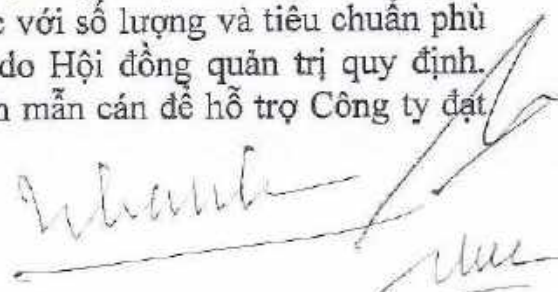 với số lượng và tiêu chuẩn phù
do Hội đồng quản trị quy định.
mẫn cán để hỗ trợ Công ty đạt
Nhanh